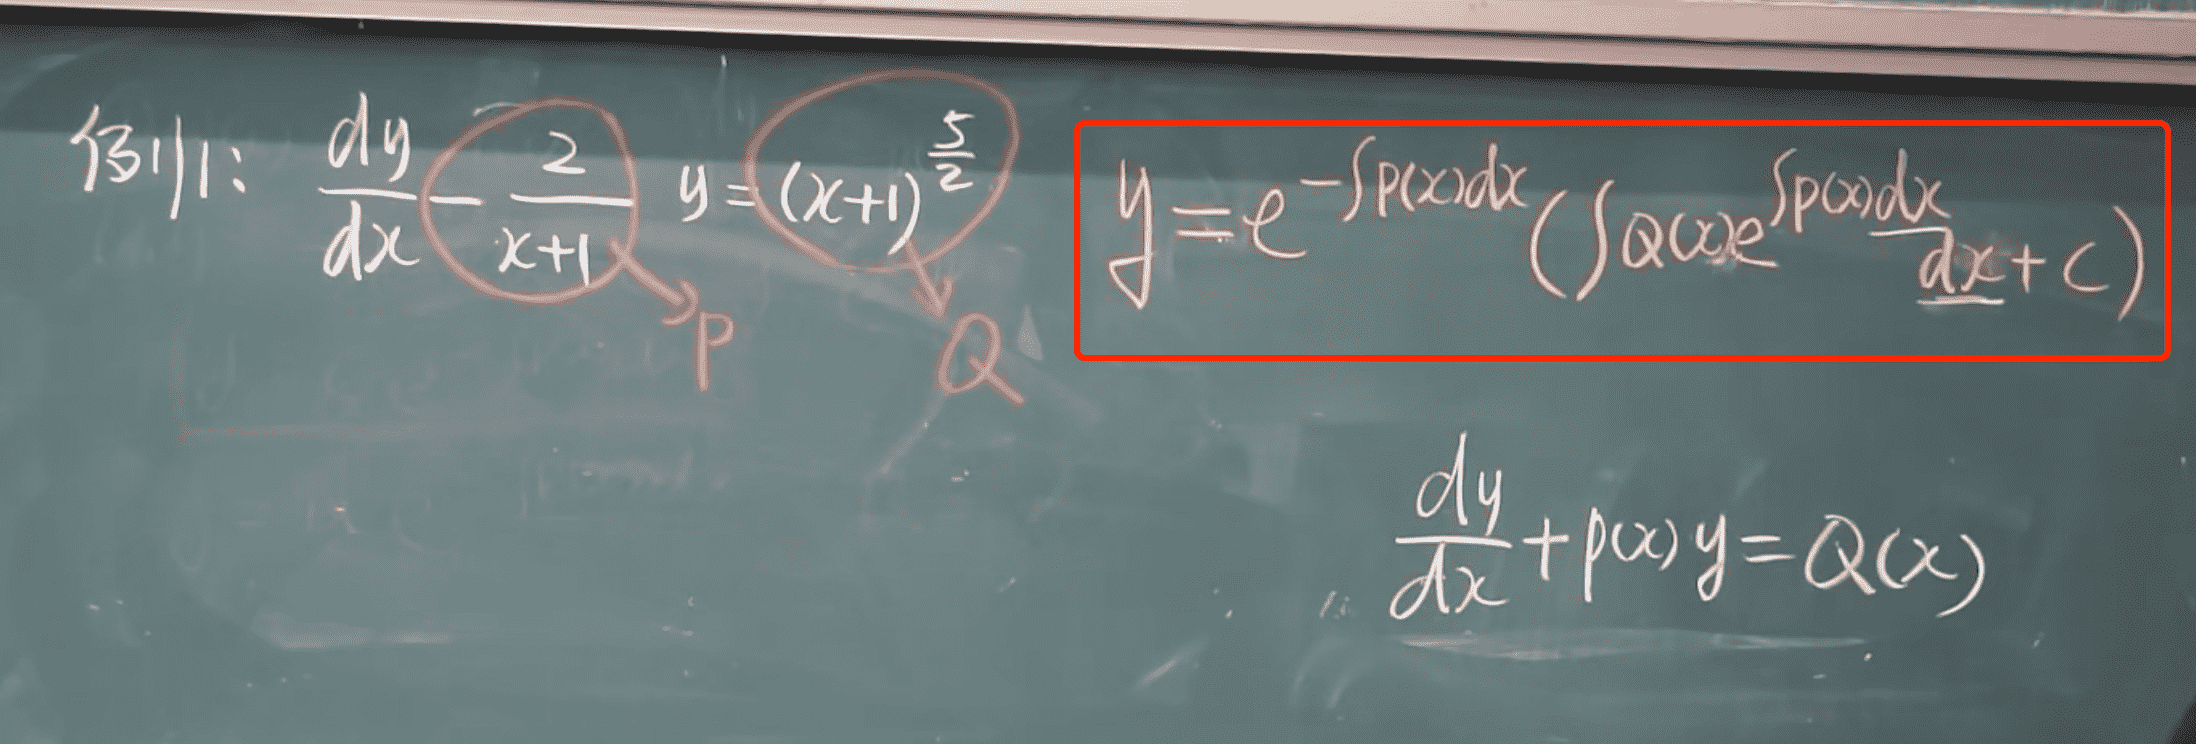 例1: dy/dx - 2/(x+1) y = (x+1)^(5/2)
P
Q
y = e^(-∫P(x)dx) (∫Q(x)e^(∫P(x)dx) dx + C)
dy/dx + P(x) y = Q(x)